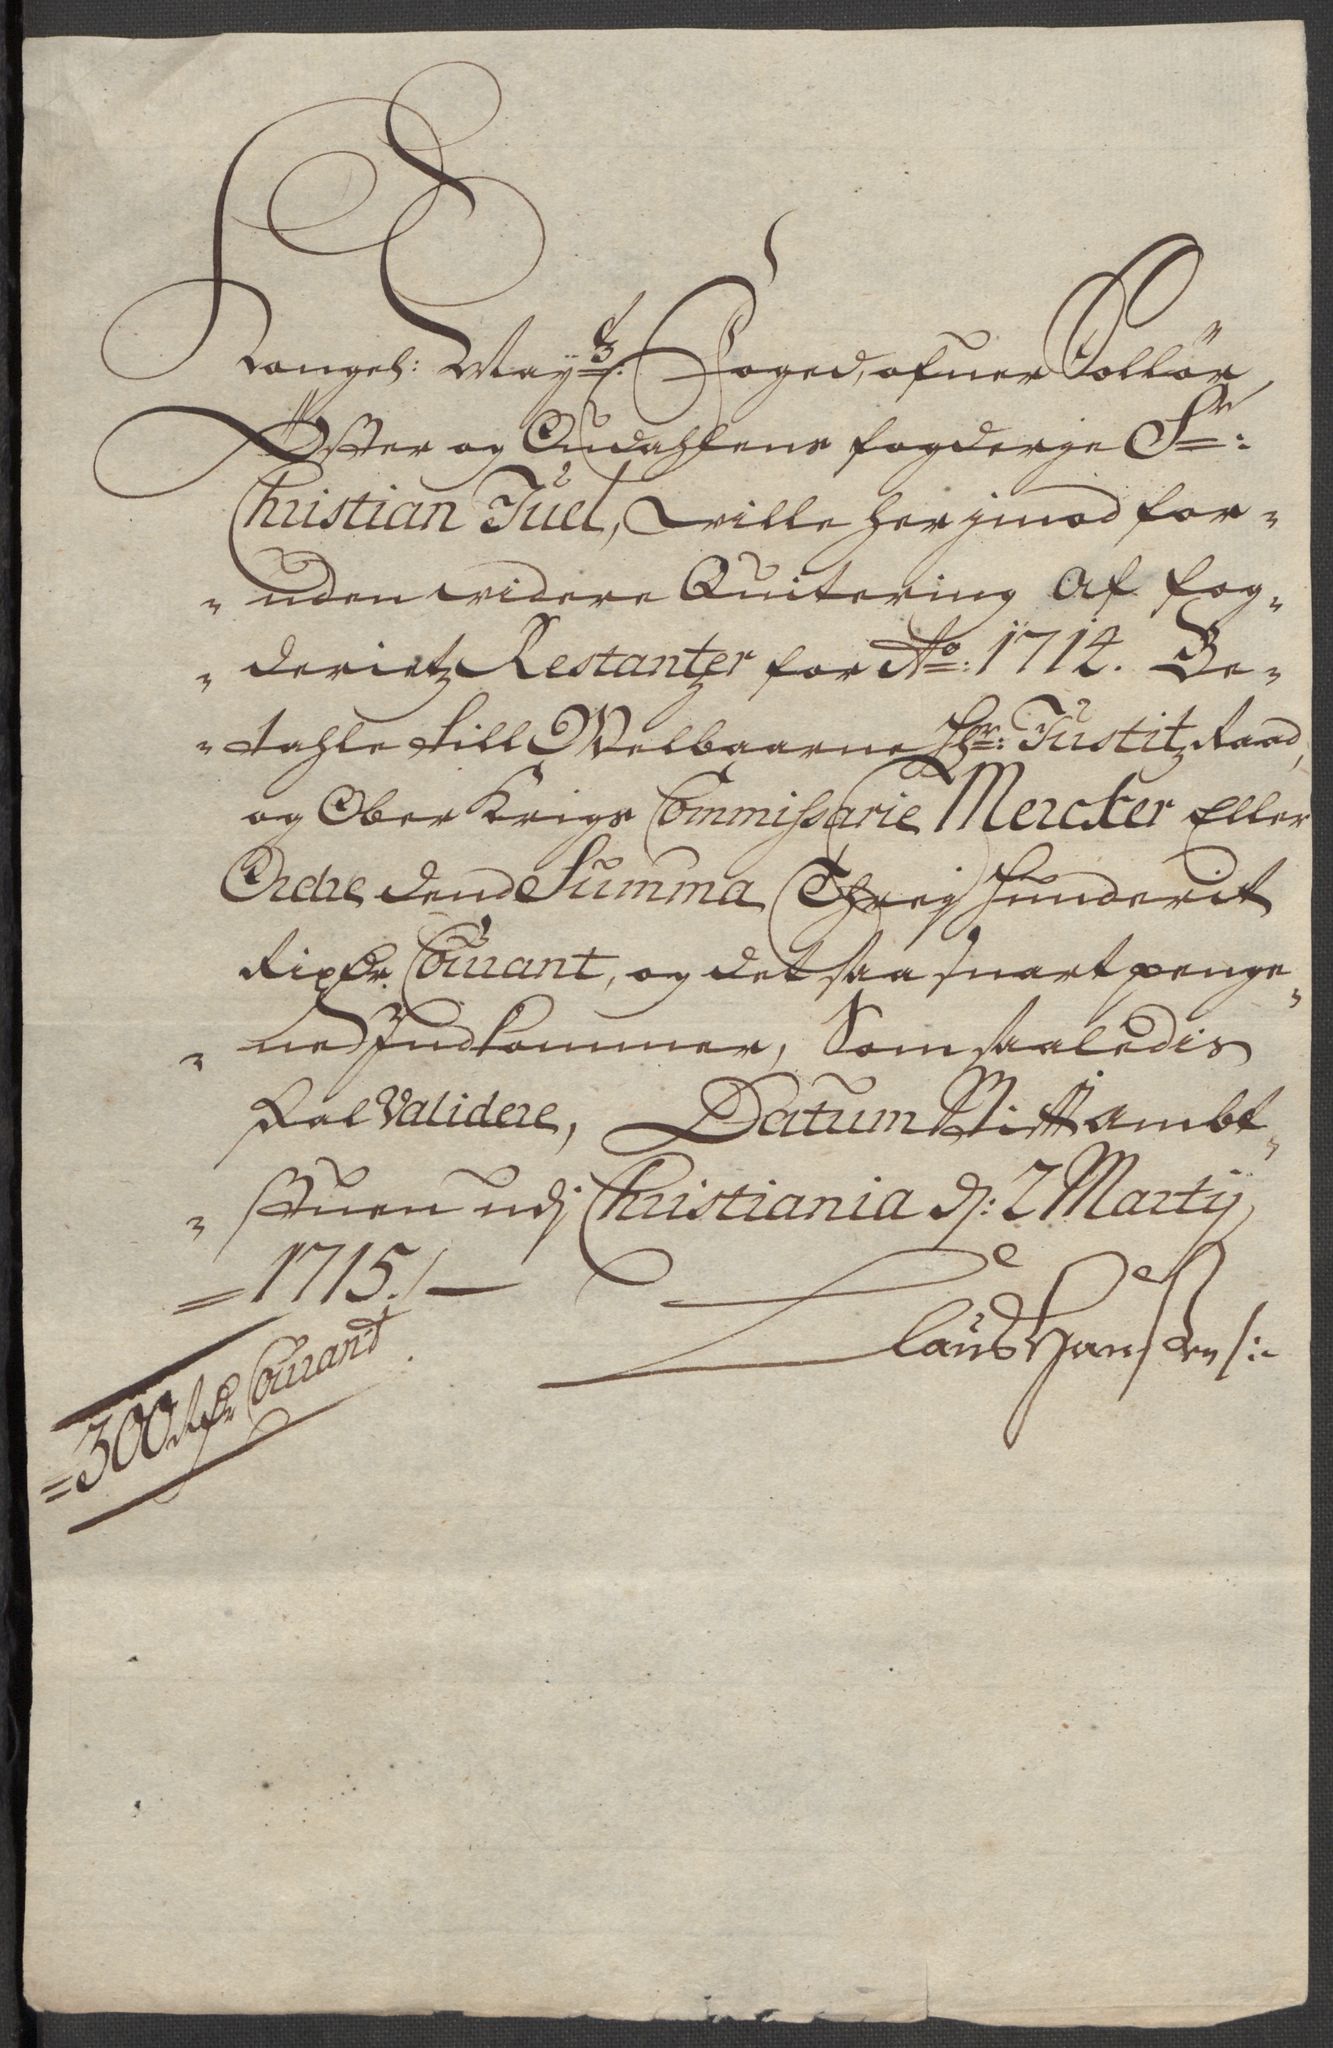 Kongel: May:ts Foged, ofuer Sollør,
Øster og Oudahlens fogderje Sr:
Christian Juel, wille herjmod for-
-uden widere Quitering af fog-
-derietz Restantzer for Ao: 1714. Be-
-tahle till Welbaarne Hr: Justitz Raad,
og Ober Krigs Commissarie Mercker Eller
Ordre dend Summa Threj Hunderit
Rixdr. Courant, og det saa snart penge-
-ne Indkommer, Som saaledis
skal Validere, Datum Stift Ambt-
-stuen udj Christiania d: 2 Martij
=1715./—
Claus Hansøn /:
=300 Rdr Courant